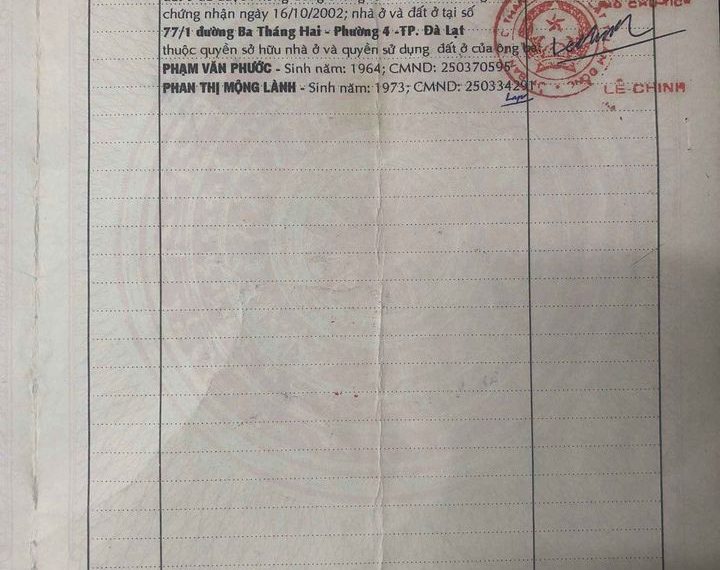 chứng nhận ngày 16/10/2002; nhà ở và đất ở tại số
77/1 đường Ba Tháng Hai - Phường 4 -TP. Đà Lạt
thuộc quyền sở hữu nhà ở và quyền sử dụng đất ở của ông bà:
PHẠM VĂN PHƯỚC - Sinh năm: 1964; CMND: 250370595
PHAN THỊ MỘNG LÀNH - Sinh năm: 1973; CMND: 250334291
LÊ CHINH